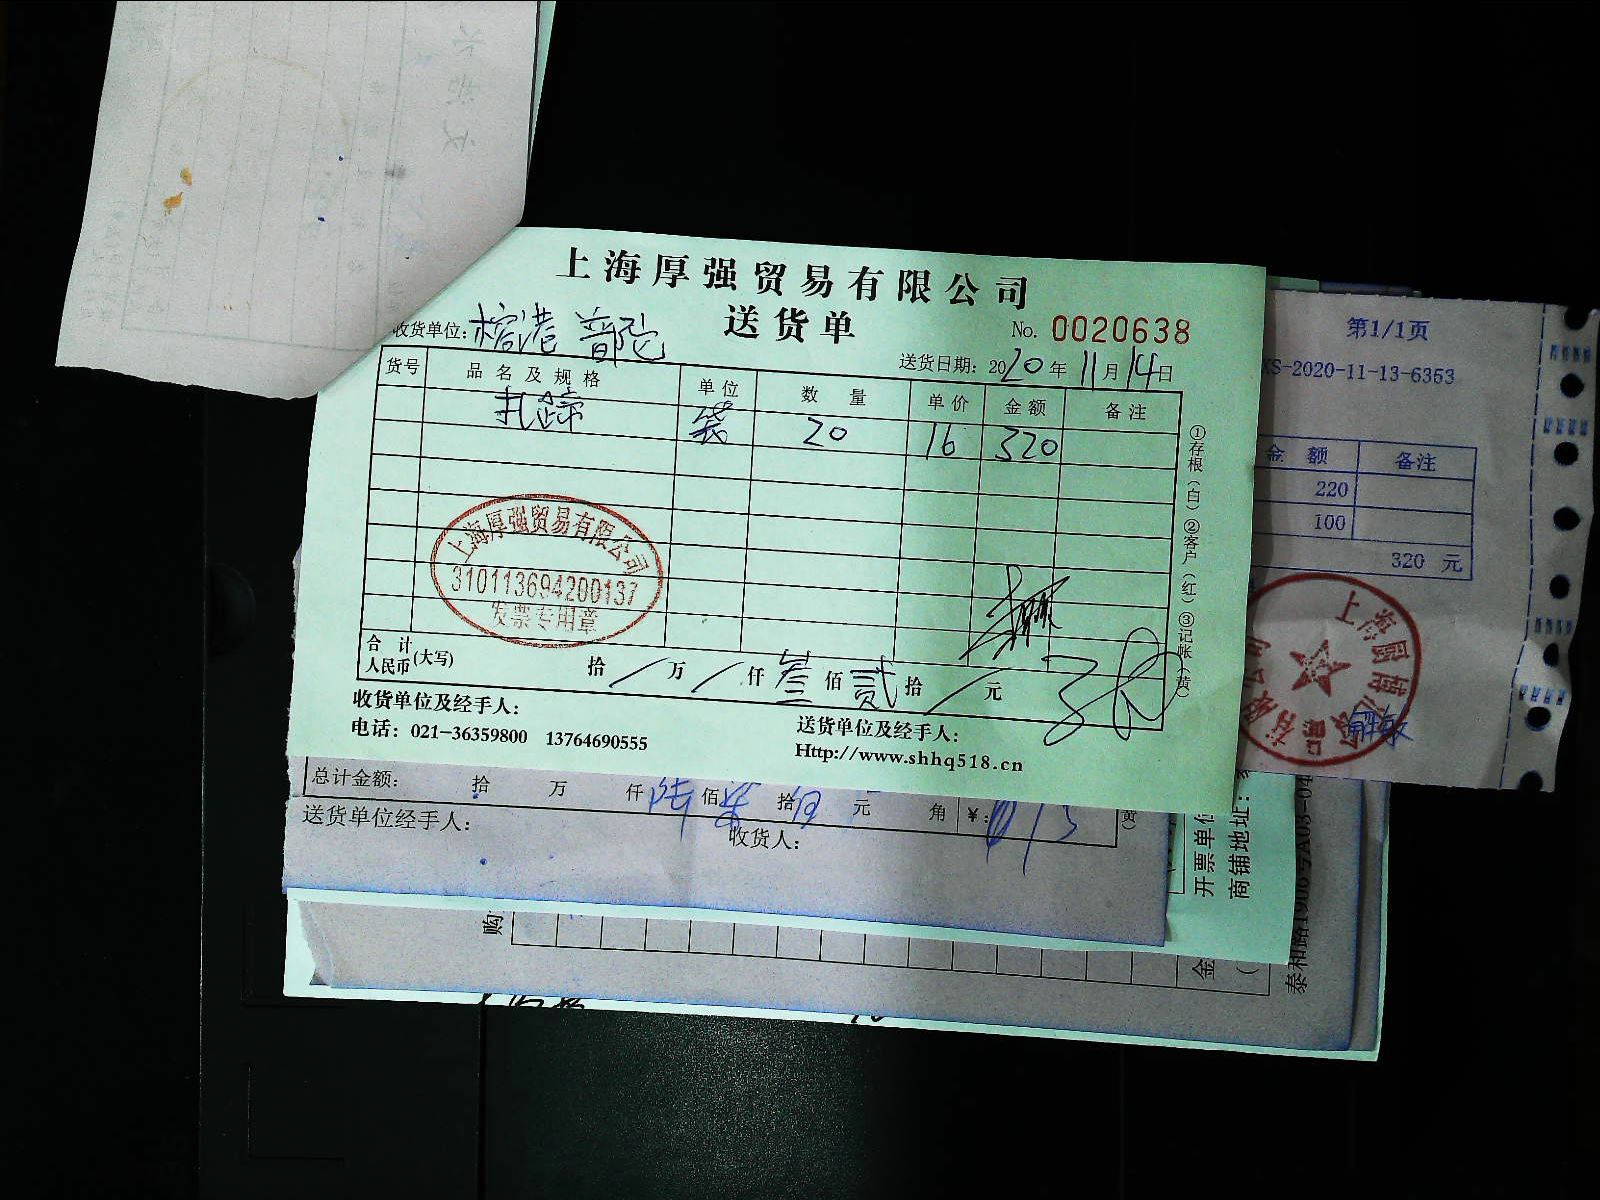 上海厚强贸易有限公司
送货单
No. 0020638
收货单位: 榕港 普陀
送货日期: 2020年11月14日
货号 品名及规格 单位 数量 单价 金额 备注
扎蹄 袋 20 16 320
①存根(白)②客户(红)③记帐(黄)
上海厚强贸易有限公司
310113694200137
发票专用章
合计人民币(大写) 拾/万/仟叁佰贰拾/元
收货单位及经手人:
送货单位及经手人:
电话: 021-36359800 13764690555
Http://www.shhq518.cn
第1/1页
XS-2020-11-13-6353
金额 备注
220
100
320 元
总计金额: 拾 万 仟 陆 佰 拾 元 角 ¥:
送货单位经手人:
收货人:
开票单位
商铺地址:
购
金